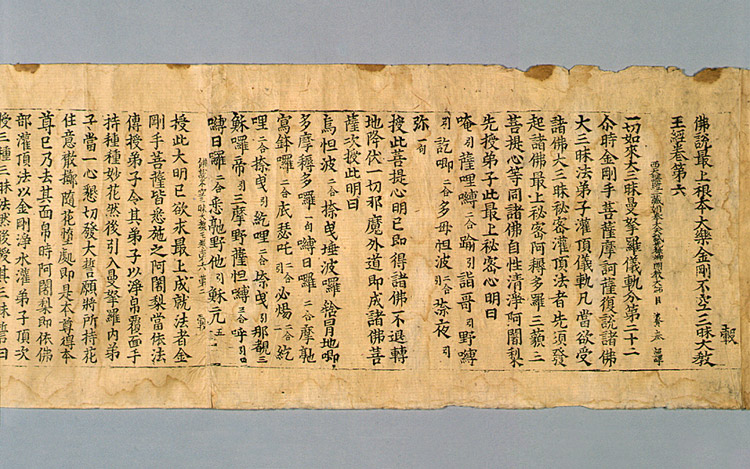 轂
佛說最上根本大樂金剛不空三昧大教
王經卷第六
一切如來大三昧曼拏羅儀軌分第二十二
尒時金剛手菩薩摩訶薩復說諸佛
大三昧法弟子灌頂儀軌凡當欲受
諸佛大三昧秘密灌頂法者先須發
起諸佛最上秘密阿耨多羅三藐三
菩提心等同諸佛自性清淨阿闍梨
先授弟子此最上秘密心明曰
唵引薩哩嚩二合踰引誐哥引野嚩
引訖唧二合多毋怛波二合捺夜引
弥引一句
授此菩提心明已即得諸佛不退轉
地降伏一切邪魔外道即成諸佛菩
薩次授此明曰
烏怛波二合捺曳埵波囉捨冒地唧
多摩耨多囉一句嚩日囉二合摩馳
窩鉢囉二合底瑟吒二合必惕二合紇
哩二合捺曳引紇哩二合捺曳引那覩二
穌囉帝引三摩野薩怛嚩二合呼引四
嚩日囉二合悉馳野他引穌元五
授此大明已欲求最上成就法者金
剛手菩薩皆悉施之阿闍梨當依法
傳授弟子令其弟子以淨帛覆面手
持種種妙花然後引入曼拏羅內弟
子當一心懇切發大誓願將所持花
住意散擲隨花墮處即是本尊得本
尊已乃去其面帛時阿闍梨即依佛
部灌頂法以金剛淨水灌弟子頂次
授三種三昧法然後受其三昧誓曰